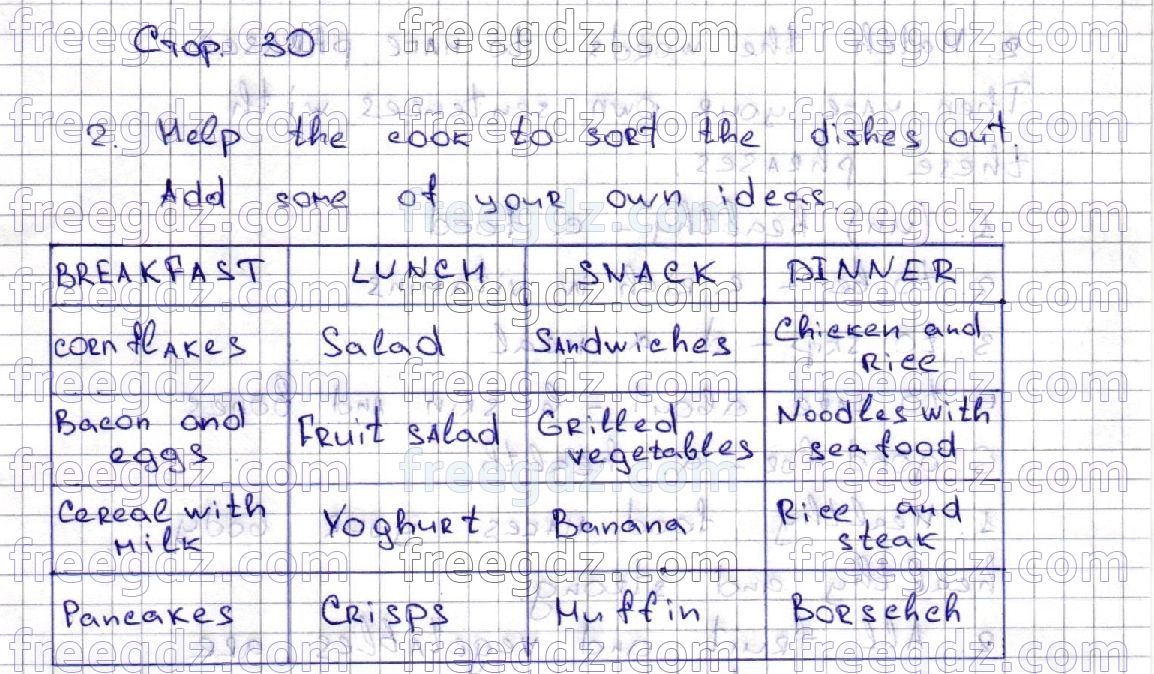 Стор. 30
2. Help the cook to sort the dishes out.
Add some of your own ideas.
BREAKFAST LUNCH SNACK DINNER
cornflakes Salad Sandwiches Chicken and Rice
Bacon and eggs Fruit salad Grilled vegetables Noodles with sea food
Cereal with milk Yoghurt Banana Rice and steak
Pancakes Crisps Muffin Borschch
freegdz.com